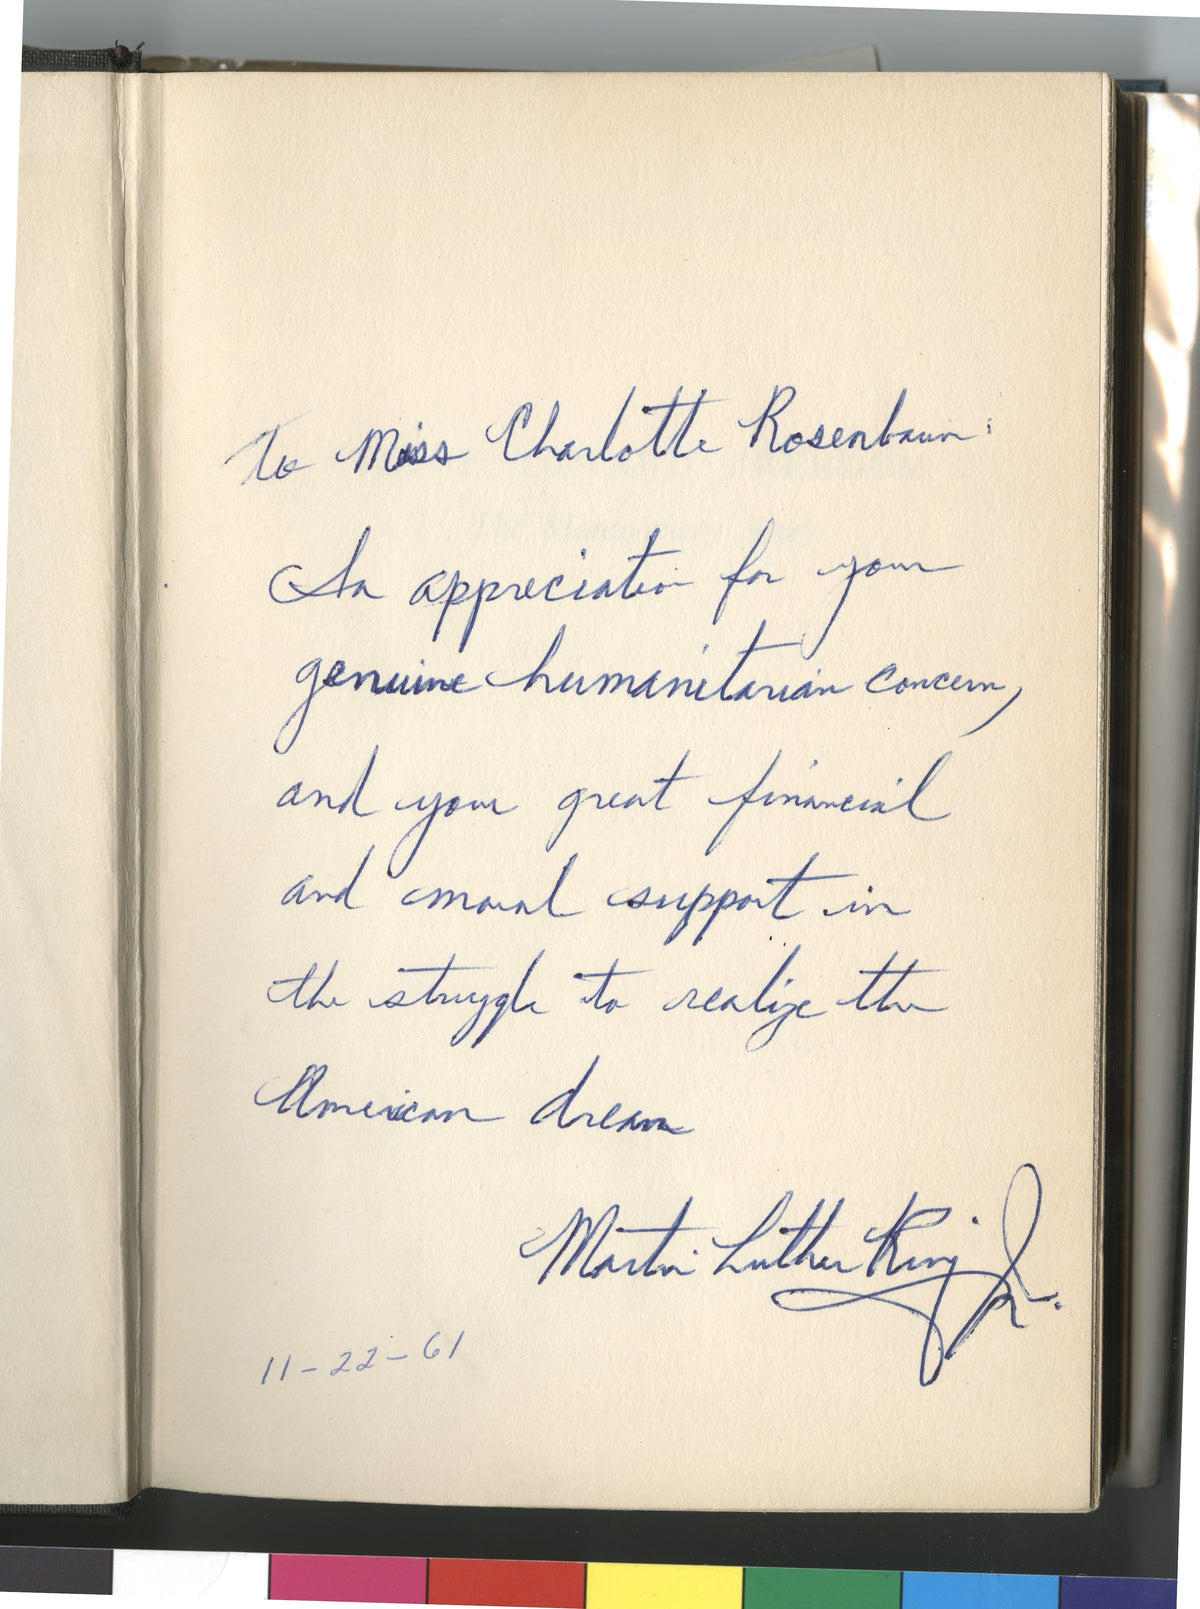 To Miss Charlotte Rosenbaum:
In appreciation for your
genuine humanitarian concern,
and your great financial
and moral support in
the struggle to realize the
American dream
Martin Luther King Jr.
11-22-61